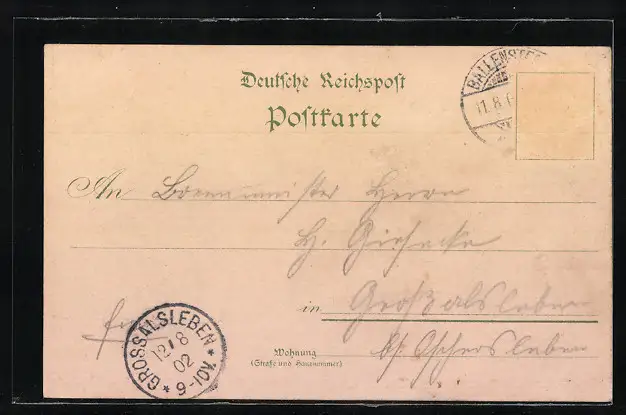 Deutsche Reichspost
Postkarte
BALLENSTEDT
11.8.
An Brennmeister Herrn
H. Giesecke
in Großalsleben
GROSSALSLEBEN
12/8
02
* 9-10V. *
Wohnung
(Straße und Hausnummer)
b/ Oschersleben